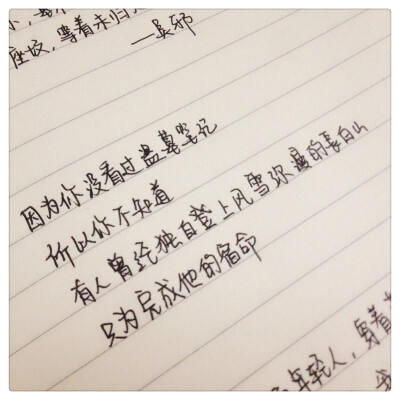 座坟，等着未归
——吴邪
因为你没看过盗墓笔记
所以你不知道
有人曾经独自登上风雪弥漫的长白山
只为完成他的宿命
年轻人，身着